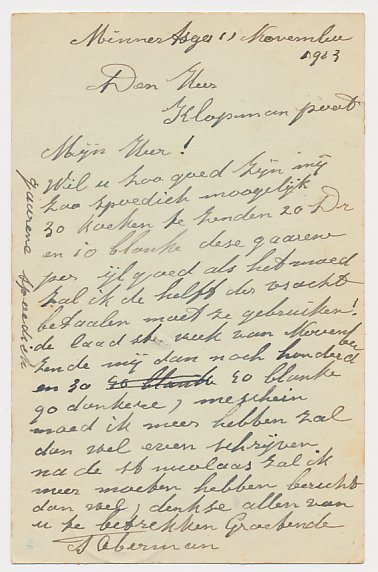 Minnertsga 11 November
1913
Den Heer
Klopman poot
Mijn Heer!
Wil u zoo goed zijn mij
zoo spoedich moogelijk
30 koeken te zenden 20 Dr
en 10 blanke dese gaarene
per ijl goed als het moed
zal ik de helft der vracht
betaalen moet ze gebruiken!
de laad ste week van Novenber
zende mij dan noch honderd
en 30 30 blanke
90 donkere, meschein
moed ik meer hebben zal
dan wel even schrijven
na de st nicolaas zal ik
meer moeten hebben bericht
dan wel, denkse allen van
u te betrekken Groetende
T Oberman
gaarene spoedich